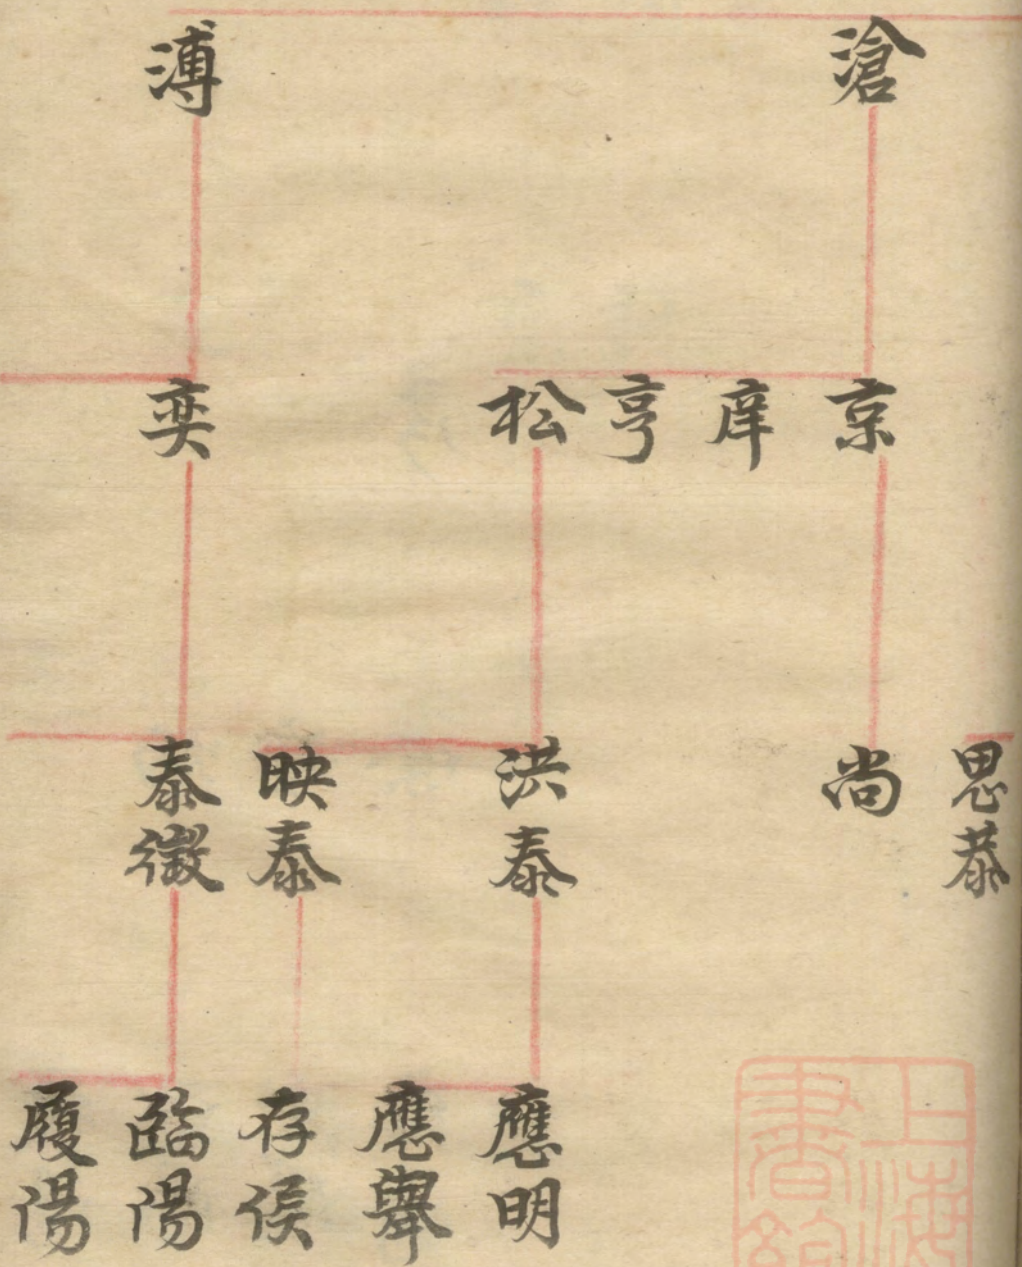 滄
溥
京
庠
亨
松
奕
思恭
尚
洪泰
映泰
泰徵
應明
應舉
存侯
臨陽
履陽
上海
書館